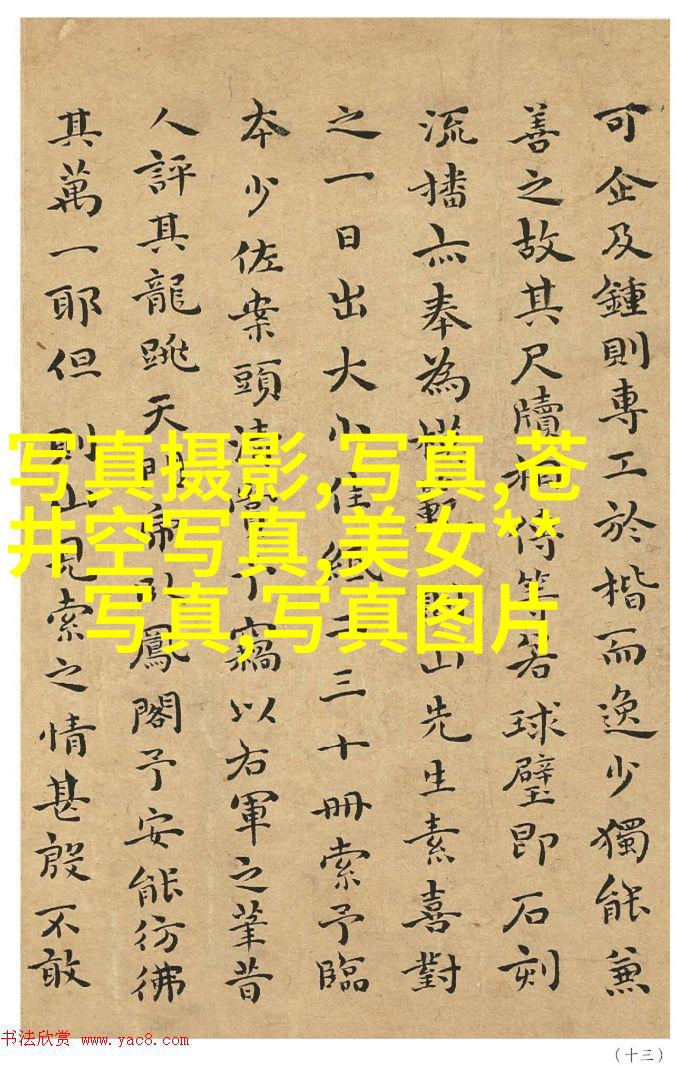 可企及鍾則專工於楷而逸少獨能兼
善之故其尺牘相傳等若球璧即石刻
流播亦奉為楷範對山先生素喜對
之一日出大小佳紙二三十冊索予臨
本少佐案頭清賞下竊以右軍之筆昔
人評其龍跳天門虎臥鳳閣予安能彷彿
其萬一耶但則山見索之情甚殷不敢
写真摄影,写真,苍
井空写真,美女**
写真,写真图片
书法欣赏 www.yac8.com
(十三)